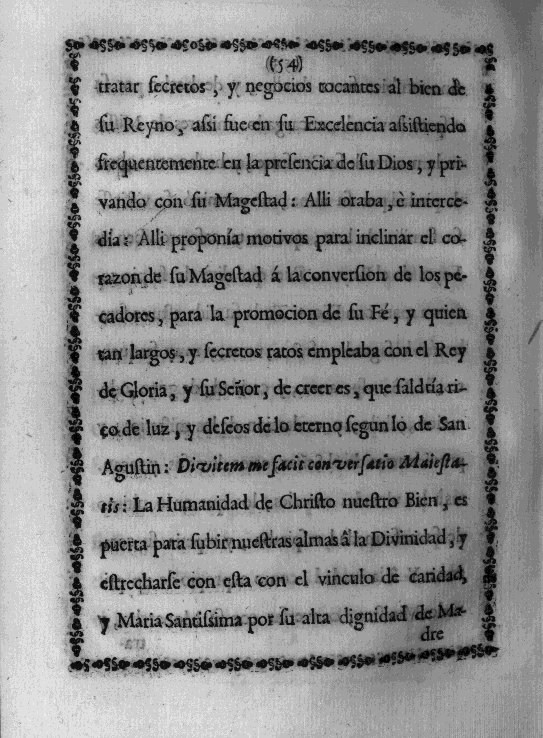 (54)
tratar ſecretos, y negocios tocantes al bien de
ſu Reyno, aſsi fue en ſu Excelencia aſsiſtiendo
frequentemente en la preſencia de ſu Dios, y pri-
vando con ſu Mageſtad: Alli oraba, è interce-
día: Alli proponía motivos para inclinar el co-
razon de ſu Mageſtad á la converſion de los pe-
cadores, para la promocion de ſu Fé, y quien
tan largos, y ſecretos ratos empleaba con el Rey
de Gloria, y ſu Señor, de creer es, que ſaldria ri-
co de luz, y deſeos de lo eterno ſegun lo de San
Aguſtin: Divitem me facit converſatio Maieſta-
tis: La Humanidad de Chriſto nueſtro Bien, es
puerta para ſubir nueſtras almas â la Divinidad, y
eſtrecharſe con eſta con el vinculo de caridad,
y Maria Santiſsima por ſu alta dignidad de Ma-
dre